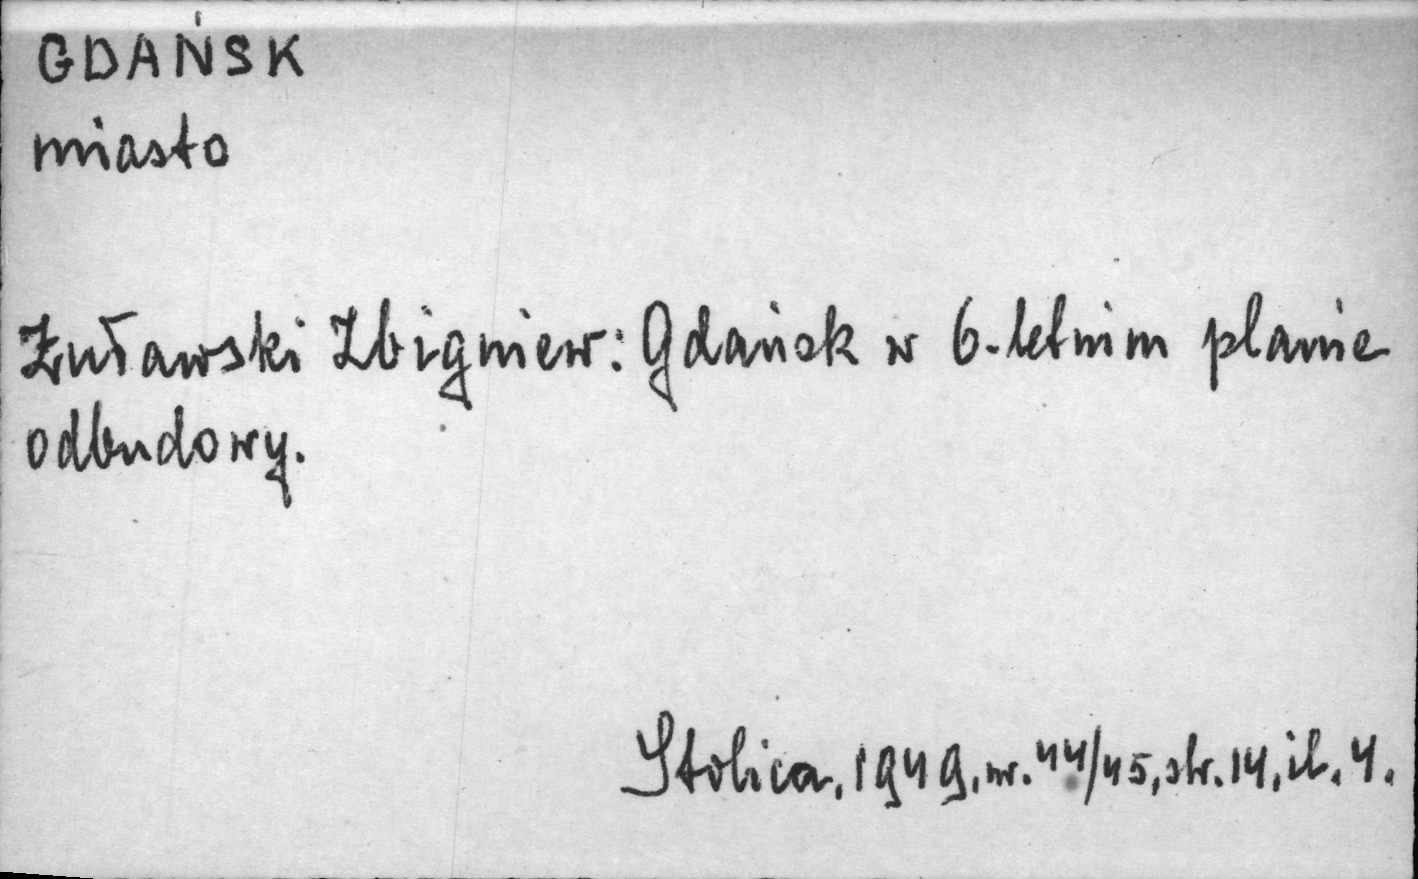 GDAŃSK
miasto
Żuławski Zbigniew: Gdańsk w 6-letnim planie
odbudowy.
Stolica, 1949, nr. 44/45, str. 14, il. 4.